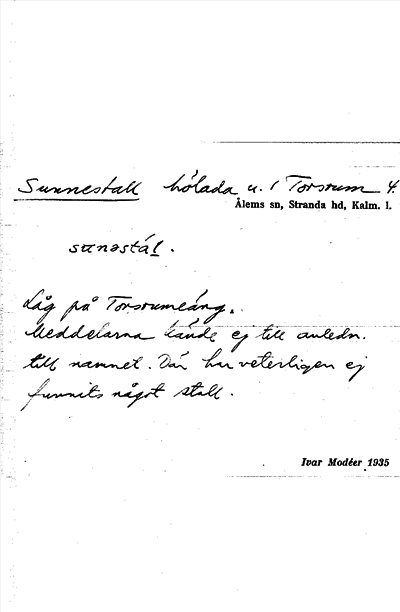 Sunnestall hölada u. 1 Torsrum 4.
Ålems sn, Stranda hd, Kalm. l.
sunəstál.
Låg på Torsrumeäng.
Meddelarna kände ej till anledn.
till namnet. Där har veterligen ej
funnits något stall.
Ivar Modéer 1935